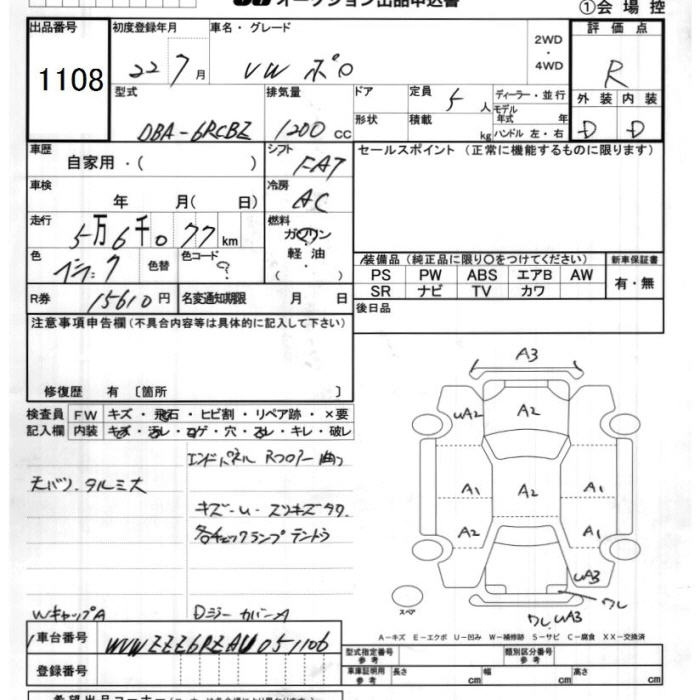 オークション出品申込書
①会場控
出品番号 1108
初度登録年月 22 7月
車名・グレード VW ポロ
2WD・4WD
評価点 R
型式 DBA-6RCBZ
排気量 1200 cc
ドア
形状
定員 5人
積載 kg
ディーラー・並行
モデル年式 年
ハンドル 左・右
外装 D
内装 D
車歴 自家用・( )
シフト FAT
セールスポイント (正常に機能するものに限ります)
車検 年 月( 日)
冷房 AC
走行 5万6千077km
燃料 ガソリン 軽油 ( )
色 色替
色コード ?
装備品 (純正品に限り○をつけてください)
新車保証書
PS PW ABS エアB AW
有・無
SR ナビ TV カワ
R券 15610円
名変通知期限 月 日
後日品
注意事項申告欄 (不具合内容等は具体的に記入して下さい)
修復歴 有 〔箇所 〕
検査員 FW キズ・飛石・ヒビ割・リペア跡・×要
記入欄 内装 キズ・汚レ・コゲ・穴・スレ・キレ・破レ
エンドパネル Rフロアー曲り
天バリ、タルミ大
キズ-U-スリキズ多々
各チェックランプテントウ
WキャップA
A3
UA2 A2
A1 A2 A1
A2 A1
UA3
ワレ
ワレ UA3
スペア
A-キズ E-エクボ U-凹み W-補修跡 S-サビ C-腐食 XX-交換済
車台番号 WVWZZZ6RZAU051106
登録番号
型式指定番号 参考
類別区分番号 参考
車庫証明用 参考 長さ cm 幅 cm 高さ cm